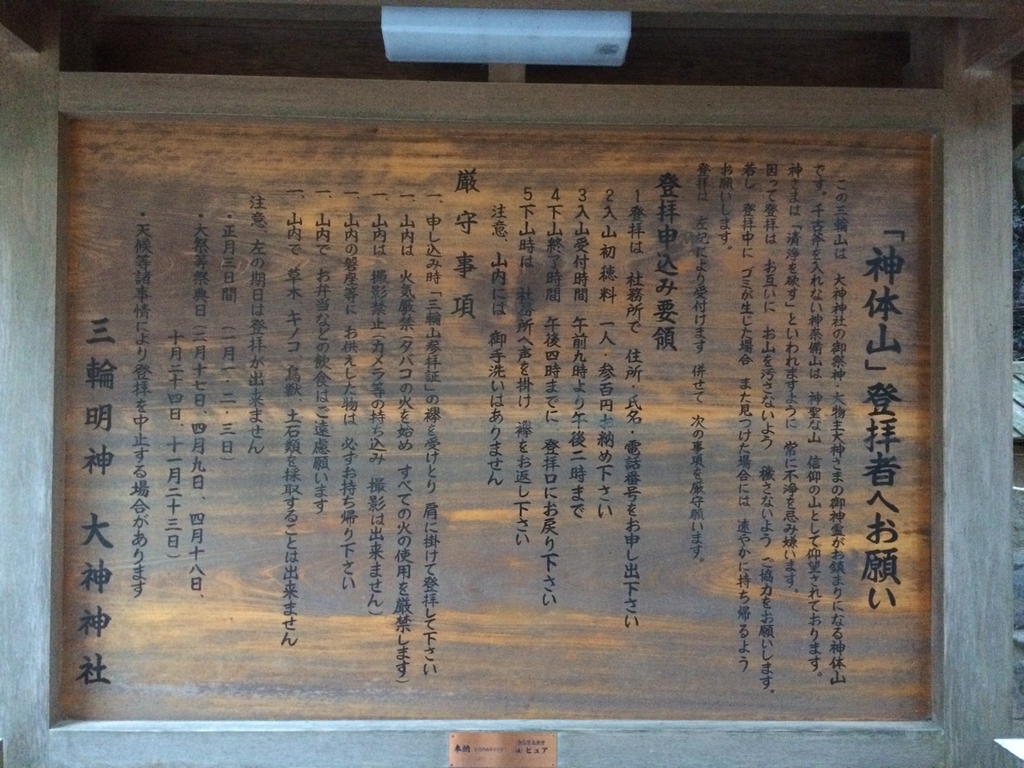 「神体山」登拝者へお願い
この三輪山は 大神神社の御祭神・大物主大神さまの御神霊がお鎮まりになる神体山
です。千古斧を入れない神奈備山は 神聖な山 信仰の山として仰望されております。
神さまは「清浄を欲す」といわれますように 常に不浄を忌み嫌います。
因って登拝は お互いに お山を汚さないよう 穢さないよう ご協力をお願いします。
若し 登拝中に ゴミが生じた場合 また見つけた場合には 速やかに持ち帰るよう
お願いします。
登拝は 左記により受付けます 併せて 次の事項を厳守願います。
登拝申込み要領
1登拝は 社務所で 住所・氏名・電話番号をお申し出下さい
2入山初穂料 一人・参百円お納め下さい
3入山受付時間 午前九時より午後二時まで
4下山終了時間 午後四時までに 登拝口にお戻り下さい
5下山時は 社務所へ声を掛け 襷をお返し下さい
注意、山内には 御手洗いはありません
厳守事項
一、申し込み時「三輪山参拝証」の襷を受けとり 肩に掛けて登拝して下さい
一、山内は 火気厳禁(タバコの火を始め すべての火の使用を厳禁します)
一、山内は 撮影禁止(カメラ等の持ち込み 撮影は出来ません)
一、山内の磐座等に お供えした物は 必ずお持ち帰り下さい
一、山内で お弁当などの飲食はご遠慮願います
一、山内で 草木 キノコ 鳥獣、土石類を採取することは出来ません
注意、左の期日は登拝が出来ません
・正月三日間 (一月一・二・三日)
・大祭等祭典日(二月十七日、四月九日、四月十八日、
十月二十四日、十一月二十三日)
・天候等諸事情により登拝を中止する場合があります
三輪明神 大神神社
奉納
ピュア